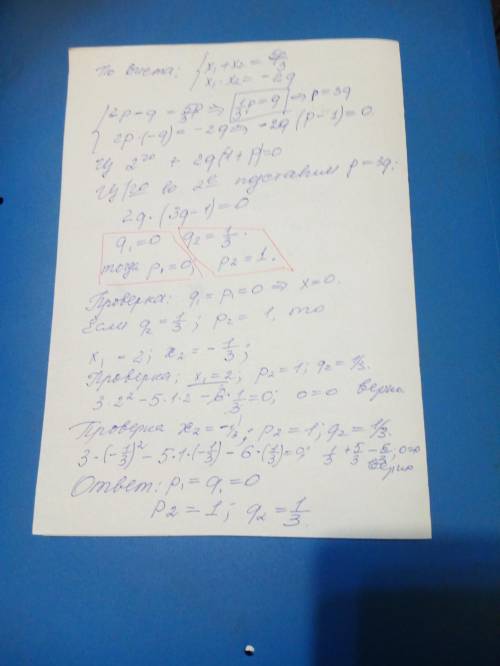 По Виета: { x₁ + x₂ = 5p/3
x₁ · x₂ = -2q
{ 2p - q = 5p/3 ⇒ 1/3 p = q ⇒ p = 3q
2p · (-q) = -2q ⇒ -2q (p - 1) = 0.
Из 2
подставим p = 3q:
2q · (3q - 1) = 0
q₁ = 0 q₂ = 1/3.
тогда p₁ = 0; p₂ = 1.
Проверка: q₁ = p₁ = 0 ⇒ x = 0.
Если q₂ = 1/3; p₂ = 1, то
x₁ = 2; x₂ = -1/3;
Проверка: x₁ = 2; p₂ = 1; q₂ = 1/3.
3 · 2² - 5 · 1 · 2 - 6 · 1/3 = 0; 0 = 0 верно
Проверка x₂ = -1/3; p₂ = 1; q₂ = 1/3.
3 · (-1/3)² - 5 · 1 · (-1/3) - 6 · (1/3) = 0; 1/3 + 5/3 - 6/3; 0=0 верно
Ответ: p₁ = q₁ = 0
p₂ = 1; q₂ = 1/3.